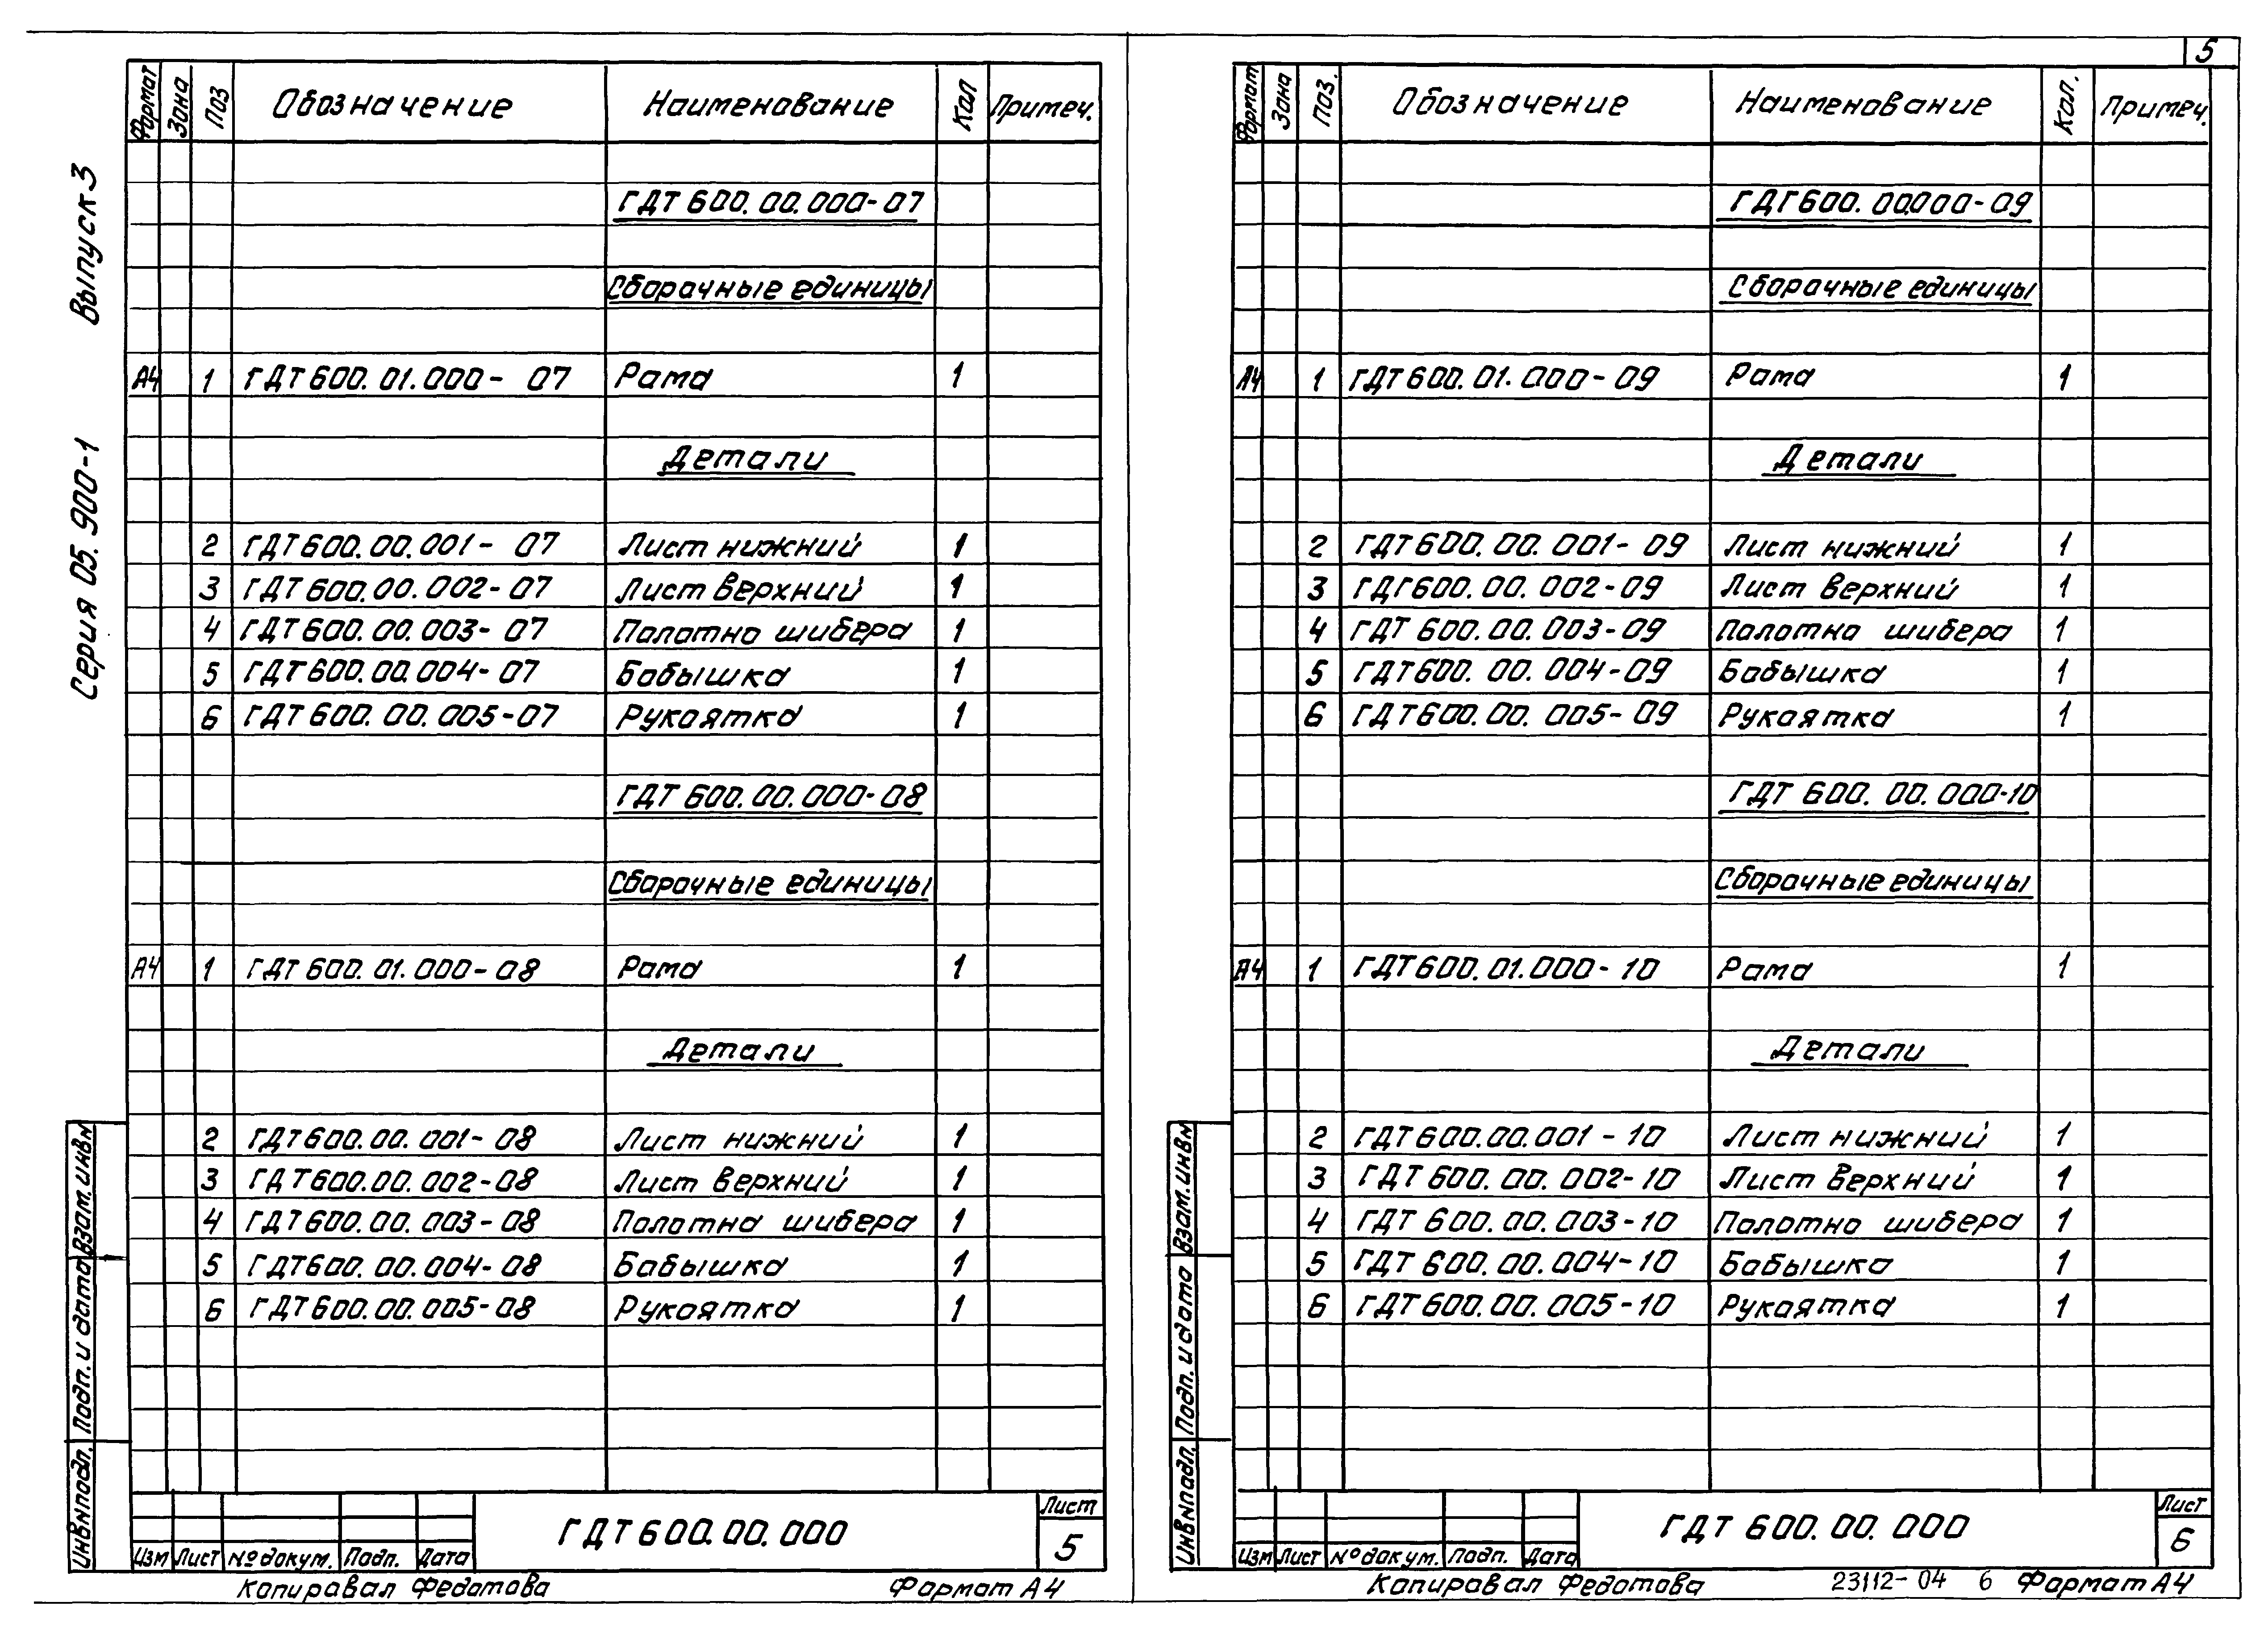 5
Серия 05.900-1 Выпуск 3
Формат Зона Поз Обозначение Наименование Кол Примеч.
ГДТ 600.00.000-07
Сборочные единицы
А4 1 ГДТ 600.01.000-07 Рама 1
Детали
2 ГДТ 600.00.001-07 Лист нижний 1
3 ГДТ 600.00.002-07 Лист верхний 1
4 ГДТ 600.00.003-07 Полотно шибера 1
5 ГДТ 600.00.004-07 Бобышка 1
6 ГДТ 600.00.005-07 Рукоятка 1
ГДТ 600.00.000-08
Сборочные единицы
А4 1 ГДТ 600.01.000-08 Рама 1
Детали
2 ГДТ 600.00.001-08 Лист нижний 1
3 ГДТ 600.00.002-08 Лист верхний 1
4 ГДТ 600.00.003-08 Полотно шибера 1
5 ГДТ 600.00.004-08 Бобышка 1
6 ГДТ 600.00.005-08 Рукоятка 1
Инв№подл. Подп. и дата Взам.инв№
Изм Лист № докум. Подп. Дата
ГДТ 600.00.000
Лист
5
Копировал Федотова Формат А4
Формат Зона Поз. Обозначение Наименование Кол. Примеч.
ГДГ600.00.000-09
Сборочные единицы
А4 1 ГДТ 600.01.000-09 Рама 1
Детали
2 ГДТ 600.00.001-09 Лист нижний 1
3 ГДГ600.00.002-09 Лист верхний 1
4 ГДТ 600.00.003-09 Полотно шибера 1
5 ГДТ 600.00.004-09 Бобышка 1
6 ГДТ 600.00.005-09 Рукоятка 1
ГДТ 600.00.000-10
Сборочные единицы
А4 1 ГДТ 600.01.000-10 Рама 1
Детали
2 ГДТ 600.00.001-10 Лист нижний 1
3 ГДТ 600.00.002-10 Лист верхний 1
4 ГДТ 600.00.003-10 Полотно шибера 1
5 ГДТ 600.00.004-10 Бобышка 1
6 ГДТ 600.00.005-10 Рукоятка 1
Инв№подл. Подп. и дата Взам.инв№
Изм Лист № докум. Подп. Дата
ГДТ 600.00.000
Лист
6
Копировал Федотова 23112-04 6 Формат А4